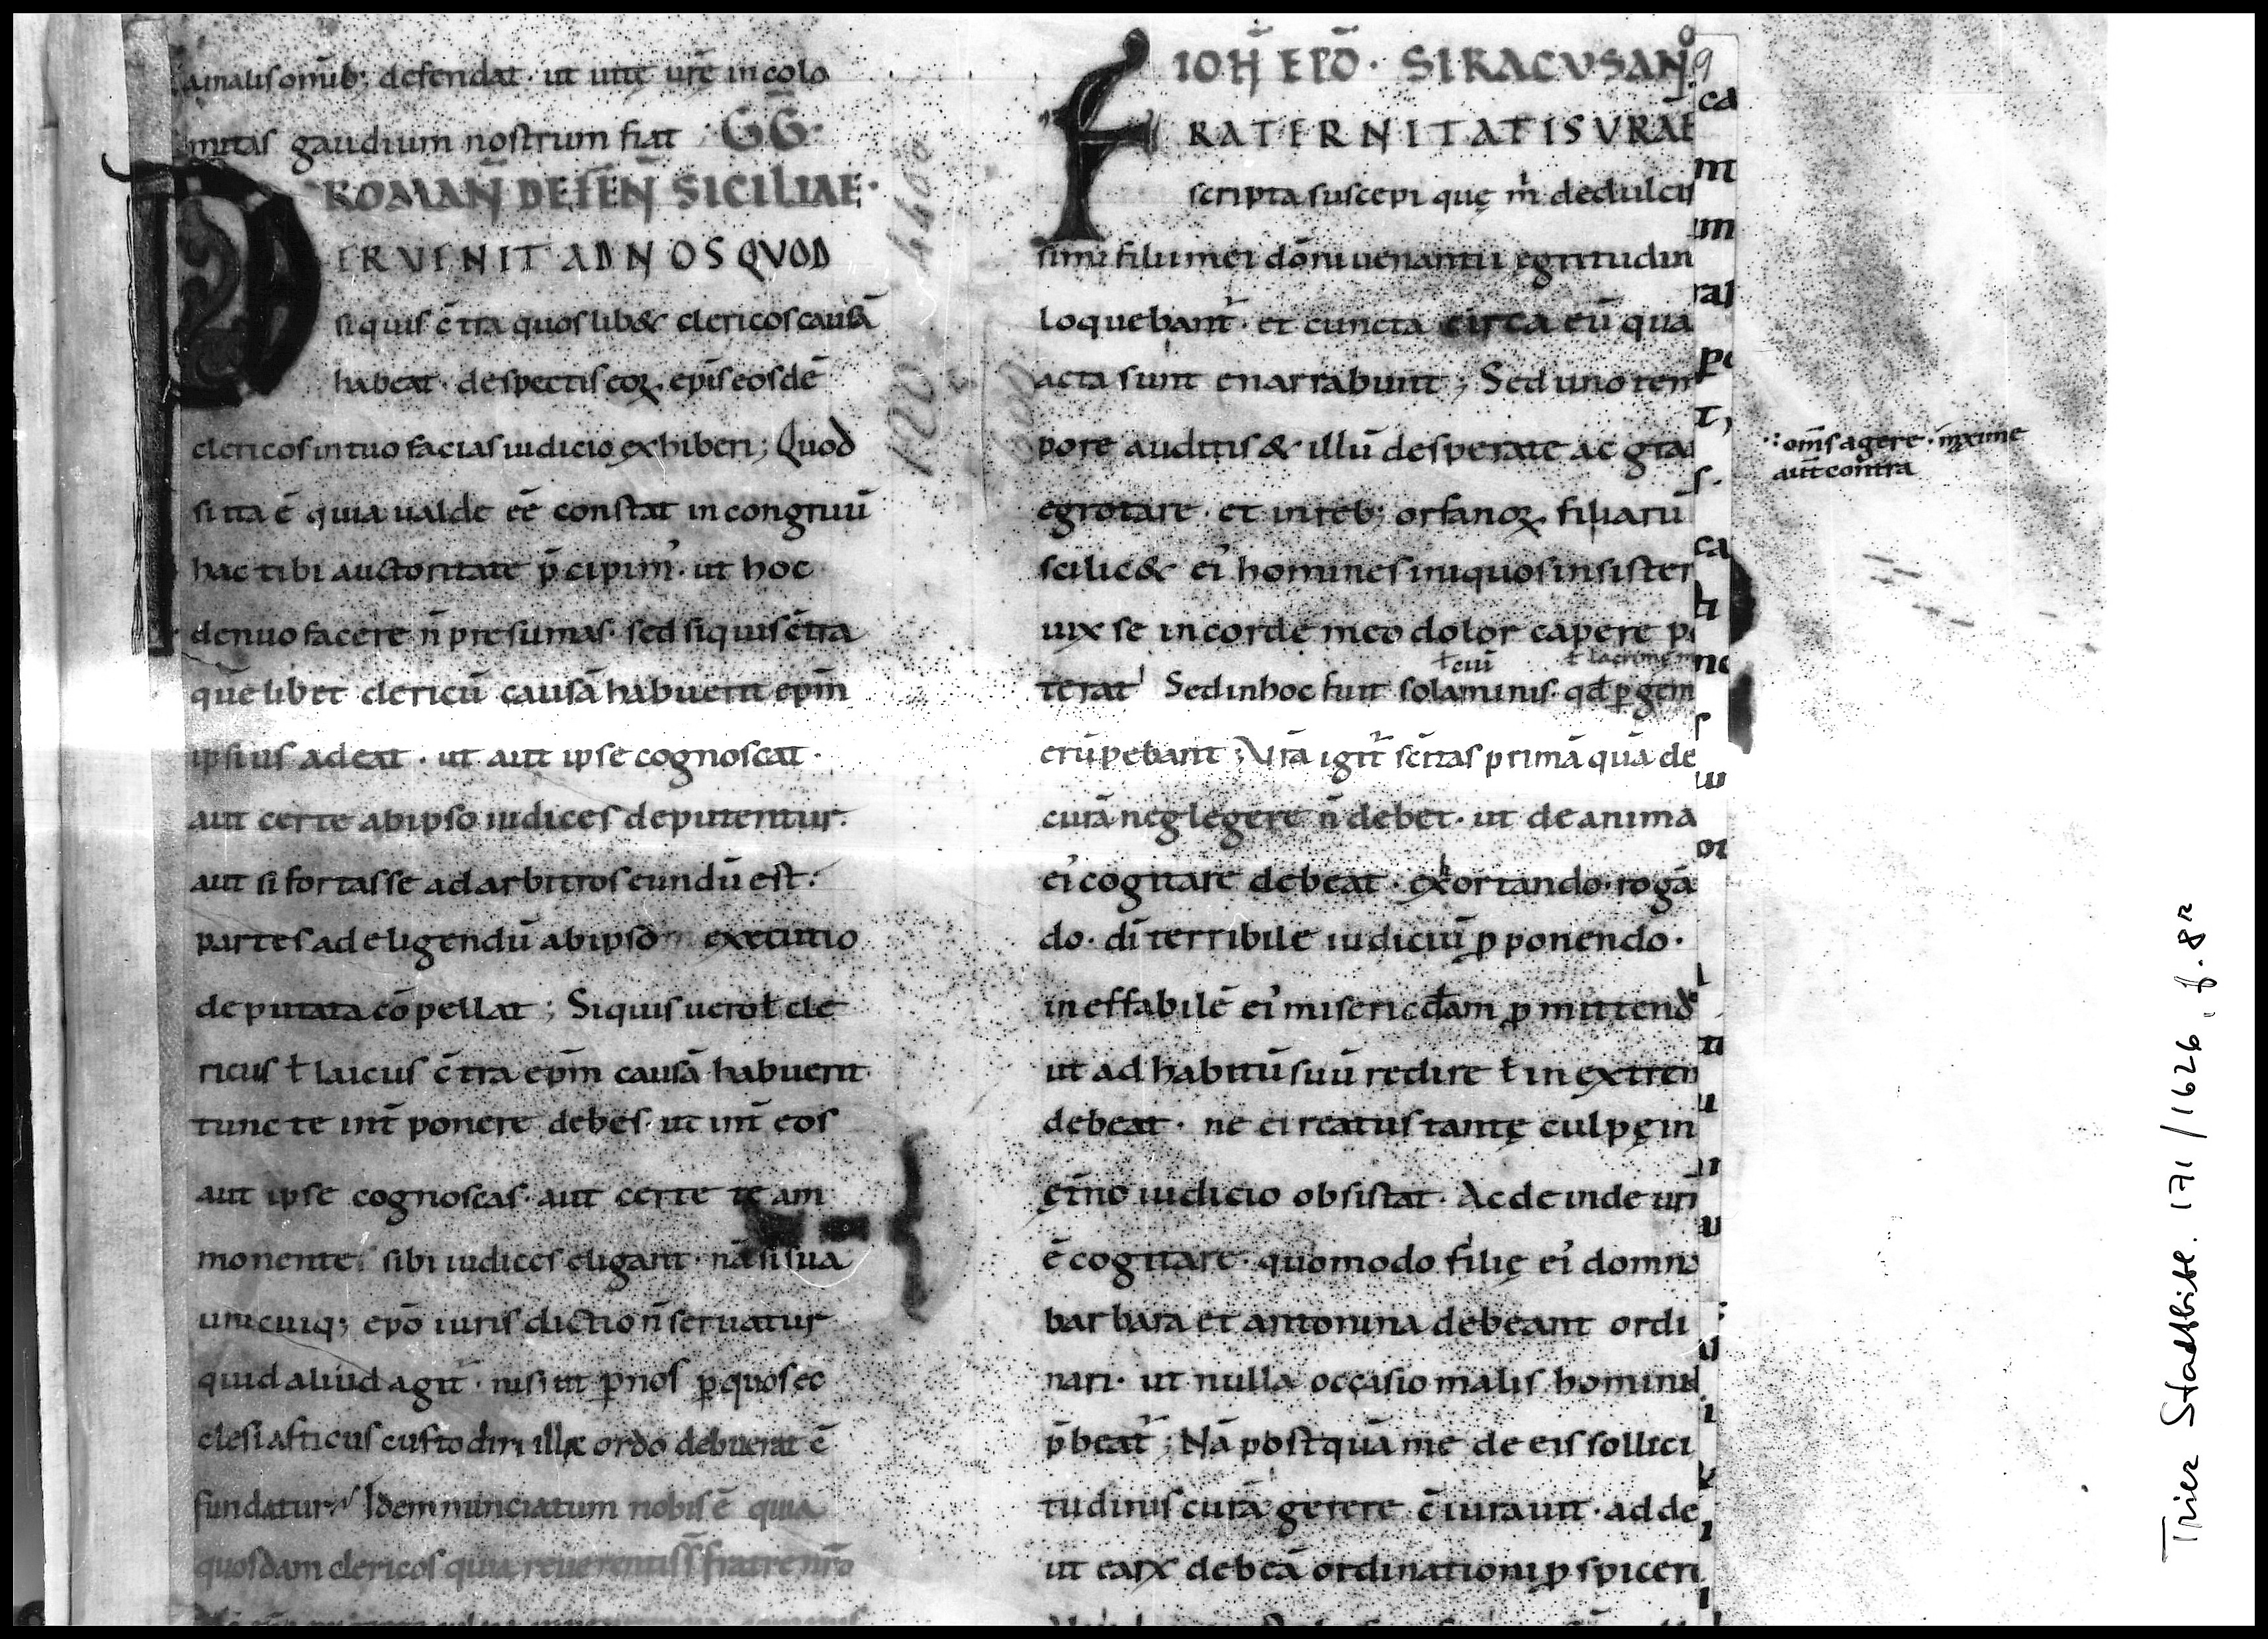 a malis omib; defendat · ut uitę urę incolo
mitas gaudium nostrum fiat · G̅G̅ ·
ROMAN̅ DEFEN̅ SICILIAE ·
PERVENIT AD NOS QVOD
siquis c̄tra quoslib& clericos causā
habeat · despectis eoꝝ ep̄is eosdē
clericos in tuo facias iudicio exhiberi; Quod
si ita ē quia ualde eē constat incongruū
hac tibi auctoritate p̄cipim' · ut hoc
denuo facere n̄ presumas · sed siquis c̄tra
quē libet clericū causā habuerit ep̄m
ipsius adeat · ut aut ipse cognoscat ·
aut certe ab ipso iudices deputentur ·
aut si fortasse ad arbitros eundū est ·
partes ad eligendū ab ipso executio
deputata cōpellat ; Siquis uero ł cle
ricus ł laicus c̄tra ep̄m causā habuerit
tunc te int̄ ponere debes · ut int̄ eos
aut ipse cognoscas · aut certe te am
monente sibi iudices eligant · nā si sua
unicuiq; ep̄o iurisdictio n̄ seruatur
quid aliud agit̄ · nisi ut ꝑ nos ꝑ quos ec
clesiasticus custodiri illꝫ ordo debuerat c̄
fundatur Idem nunciatum nobis ē quia
quosdam clericos quia reuerentiss̄ fratre nr̄o
IOH̄ EPO̅ · SIRACVSAN̊
FRATERNITATIS VRAE
scripta suscepi quę m̄ de dulcis
simi filii mei dōni uenantii ęgritudin
loquebant̄ · et cuncta circa eū qua
acta sunt enarrabunt ; Sed uno tem
pore auditis & illū desperate ac gra
egrotare · et in reb; orfanoꝝ filiarū
scilic& ei' homines iniquos insister
uix se in corde meo dolor capere p
ł eiū ł lacrime
terat Sed in hoc fuit solaminis · qđ ꝑ gem
erūpebant ; Vrā igit̄ sc̄itas primā quā de
curā neglegere n̄ debet · ut de anima
ei' cogitare debeat · exhortando · rogā
do · dī terribile iudiciū ꝓponendo ·
ineffabilē ei' misericđam ꝓmittend
ut ad habitū suū redire ł in extrem
debeat · ne ei reatus tantę culpę in
ęt̄no iudicio obsistat · Ac deinde ur̄i
ē cogitare · quomodo filię ei' domn
barbara et antonina debeant ordi
nari · ut nulla occasio malis hominib
p̄beat̄ ; Nā postquā me de eis sollici
tudinis curā gerere c̄iurauit · ad de
ut earꝝ debeā ordinationi ꝓspicere
∵ om̄s agere · maxime
aut̄ contra
Trier Stadtbibl. 171/1626, f. 8r